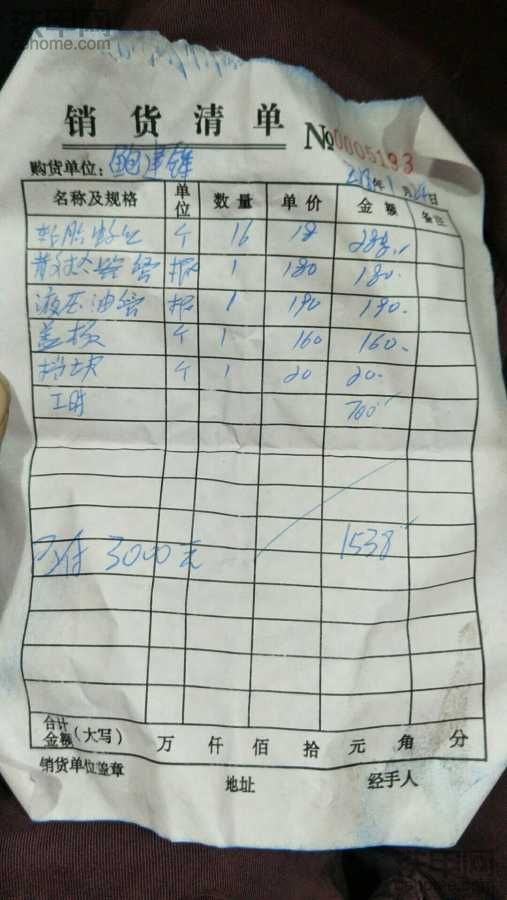 cehome.com
销货清单
№0005193
购货单位:
年1月24日
名称及规格 单位 数量 单价 金额 备注
个 16 18 288.
1 180 180.
液压油管 根 1 190 190.
盖板 个 1 160 160.
个 1 20 20.
工时 700
已付 3000元 1538
合计金额(大写) 万 仟 佰 拾 元 角 分
销货单位盖章 地址 经手人